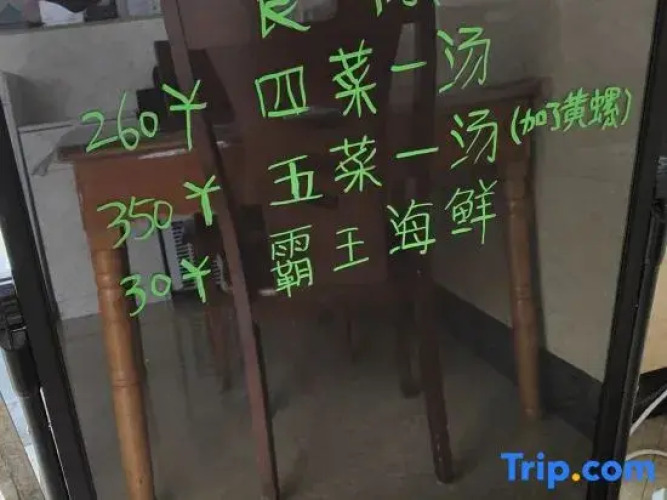 260¥ 四菜一汤
350¥ 五菜一汤(加了黄螺)
30¥ 霸王海鲜
Trip.com